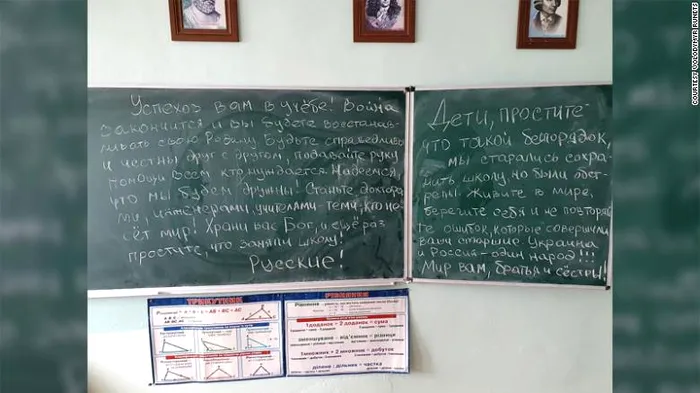 Успехов вам в учёбе! Война
закончится и вы будете восстанав-
ливать свою Родину. Будьте справедливы
и честны друг с другом, подавайте руку
помощи всем кто нуждается. Надеемся,
что мы будем дружны! Станьте доктора-
ми, инженерами, учителами - теми, кто не-
сёт мир! Храни вас Бог, и ещё раз
простите, что заняли школу!
Русские!
Дети, простите
что такой беспорядок,
мы старались сохра-
нить школу, но были обст-
релы. Живите в мире,
берегите себя и не повторяй
те ошибок, которые совершили
ваши старшие. Украина
и Россия - один народ!!!
Мир вам, братья и сёстры!
ТРИКУТНИК
РІВНЯННЯ
1доданок + 2 доданок = сума
зменшуване - від'ємник = різниця
1множник • 2 множник = добуток
ділене : дільник = частка
COURTESY VOLODYMYR RUNETS